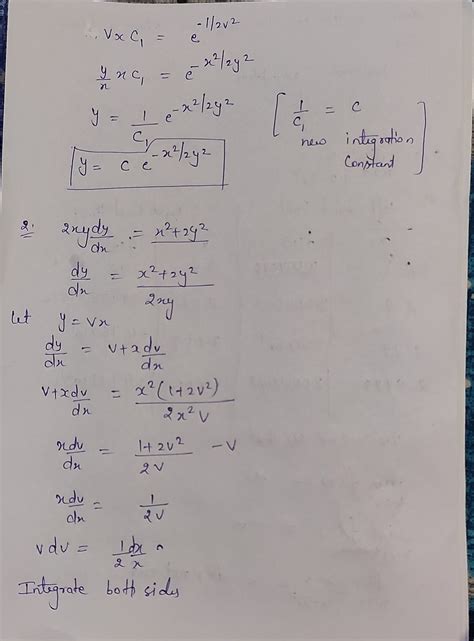 ∴ V x C₁ = e^(-1/2v²)
y/x x C₁ = e^(-x²/2y²)
y = 1/C₁ e^(-x²/2y²) [ 1/C₁ = C
new integration
constant ]
y = C e^(-x²/2y²)
2. 2xy dy/dx = x²+2y²
dy/dx = (x²+2y²)/(2xy)
let y = vx
dy/dx = v + x dv/dx
v + x dv/dx = x²(1+2v²)/(2x²v)
x dv/dx = (1+2v²)/(2v) - v
x dv/dx = 1/(2v)
v dv = 1/2 dx/x
Integrate both sides